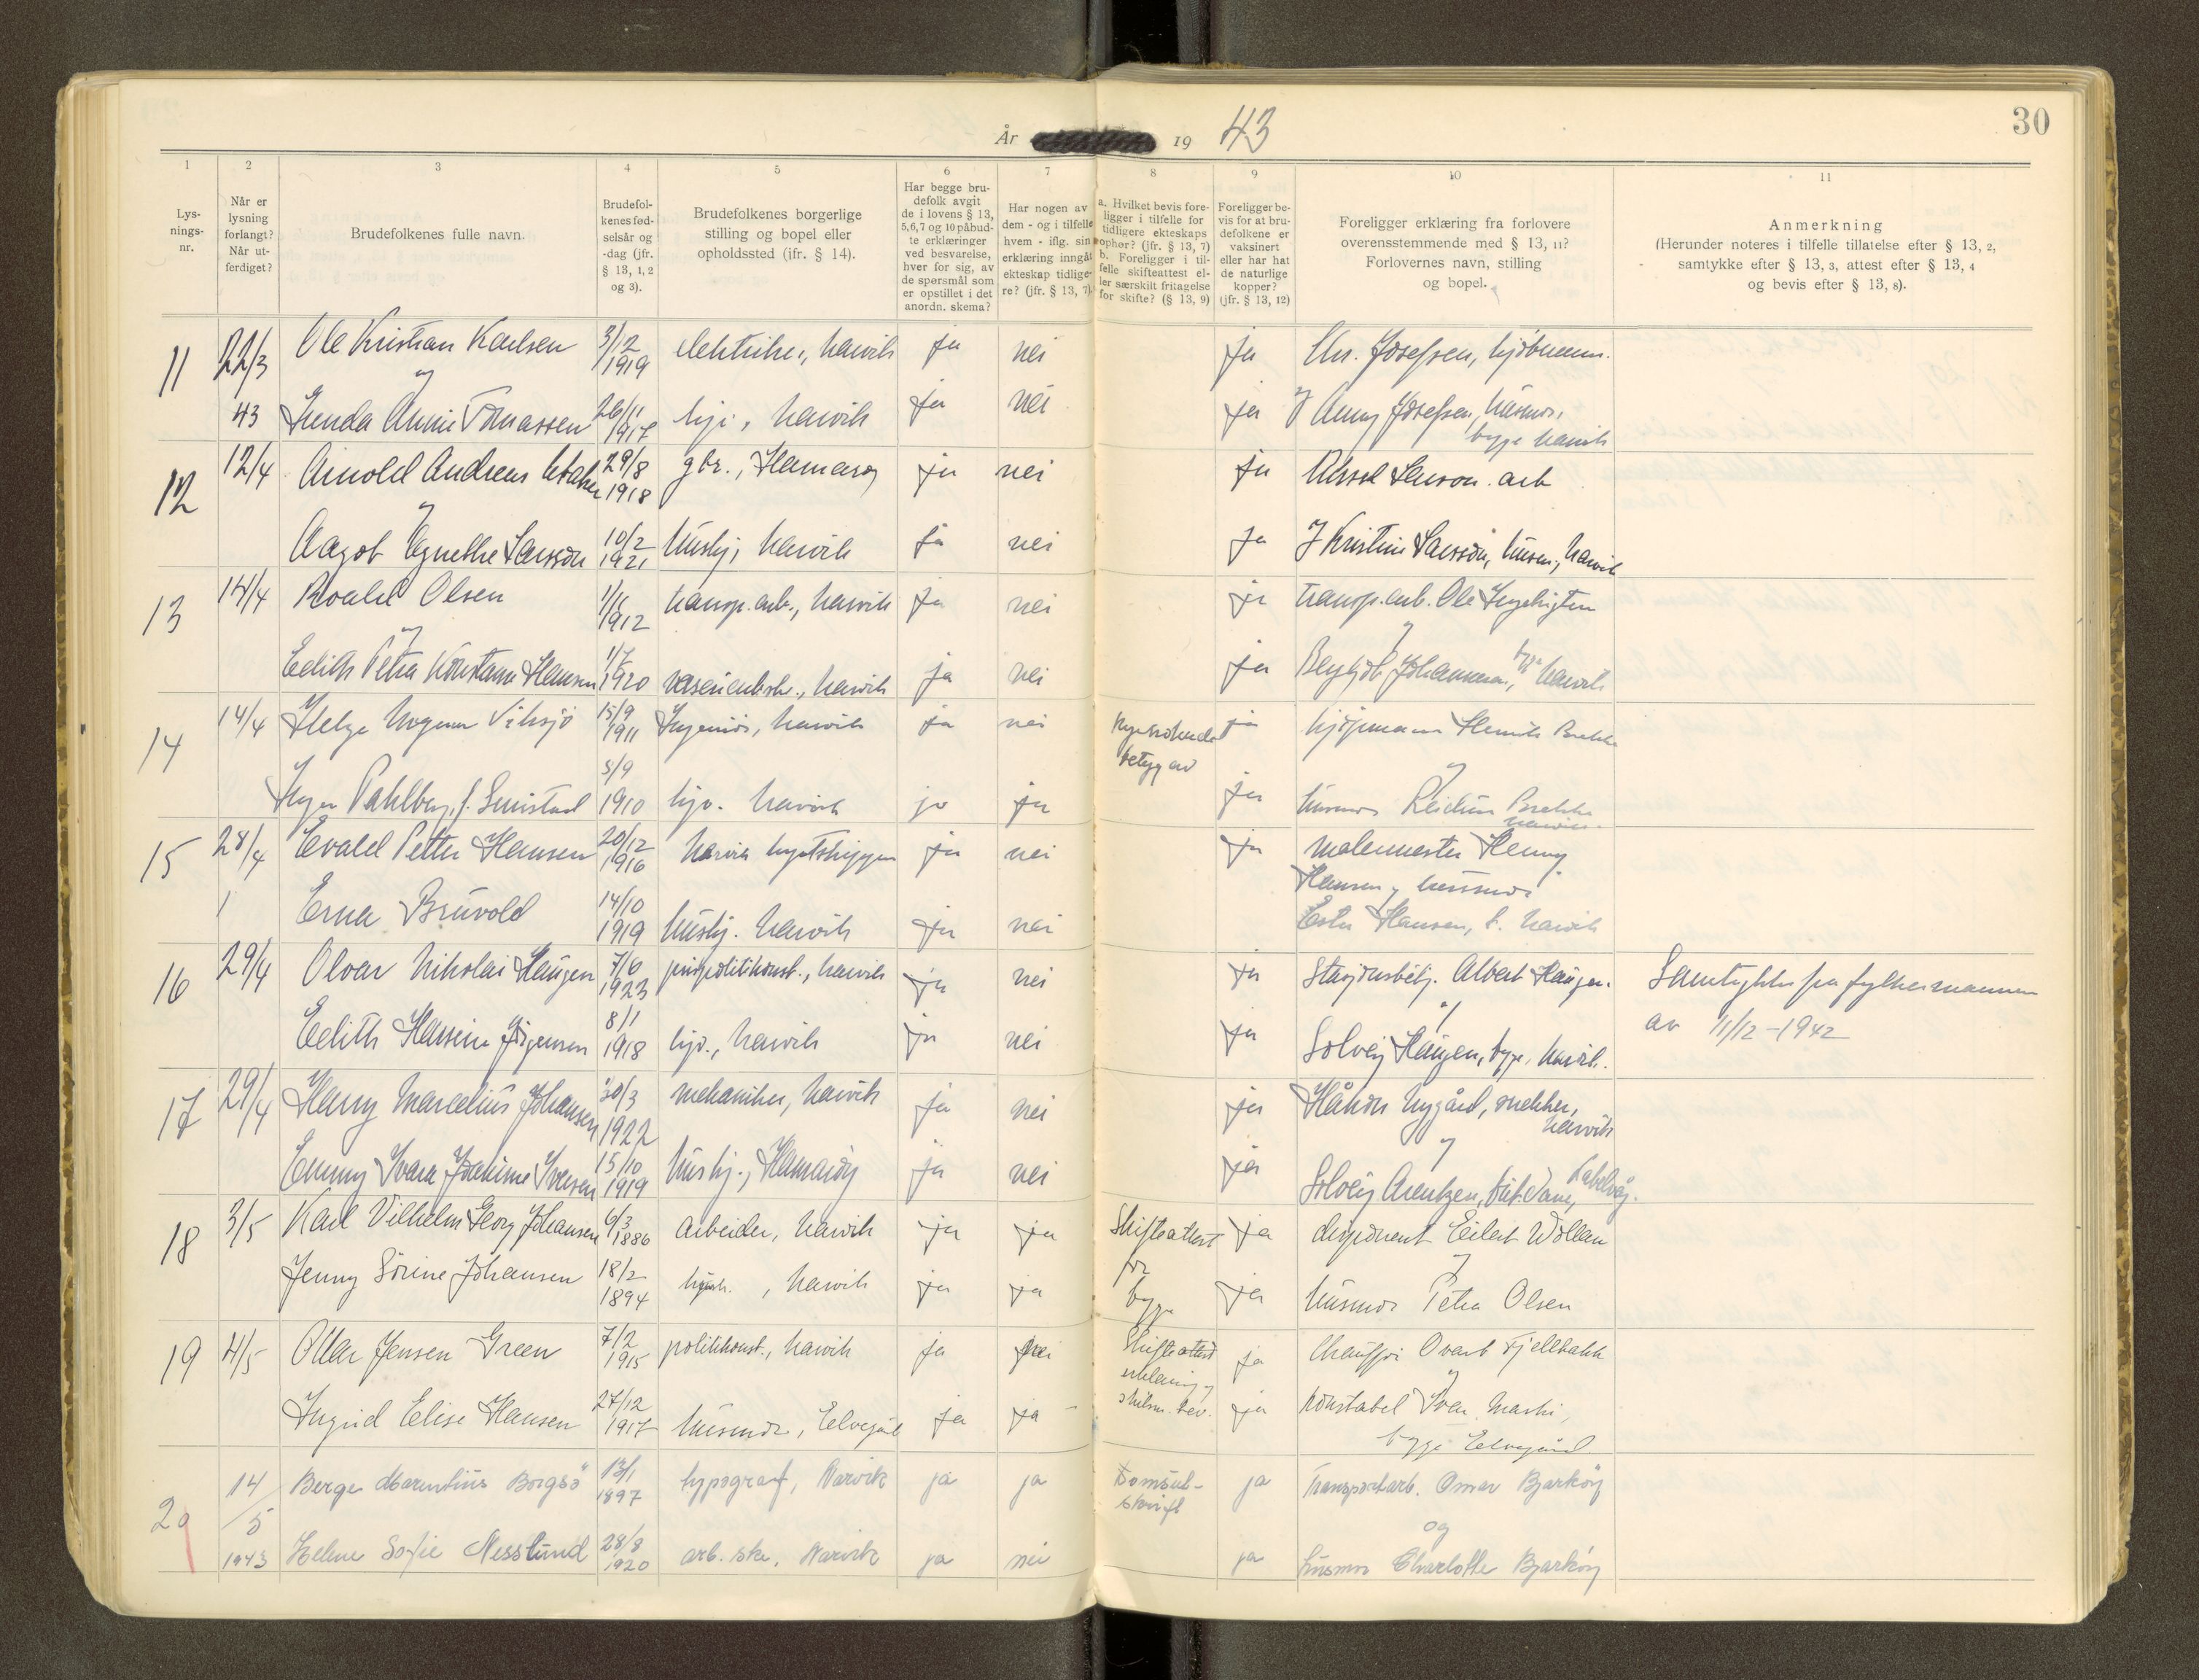 30
År 19 43
1 2 3 4 5 6 7 8 9 10 11
Lysnings-nr.
Når er lysning forlangt? Når utferdiget?
Brudefolkenes fulle navn.
Brudefolkenes fødselsår og -dag (jfr. § 13, 1, 2 og 3).
Brudefolkenes borgerlige stilling og bopel eller opholdssted (jfr. § 14).
Har begge brudefolk avgit de i lovens § 13, 5, 6, 7 og 10 påbudte erklæringer ved besvarelse, hver for sig, av de spørsmål som er opstillet i det anordn. skema?
Har nogen av dem - og i tilfelle hvem - iflg. sin erklæring inngåt ekteskap tidligere? (jfr. § 13, 7).
a. Hvilket bevis foreligger i tilfelle for tidligere ekteskaps ophør? (jfr. § 13, 7) b. Foreligger i tilfelle skifteattest eller særskilt fritagelse for skifte? (§ 13, 9)
Foreligger bevis for at brudefolkene er vaksinert eller har hat de naturlige kopper? (jfr. § 13, 12)
Foreligger erklæring fra forlovere overensstemmende med § 13, 11? Forlovernes navn, stilling og bopel.
Anmerkning (Herunder noteres i tilfelle tillatelse efter § 13, 2, samtykke efter § 13, 3, attest efter § 13, 4 og bevis efter § 13, 8).
11 22/3 Ole Kristian Karlsen 3/12 1919 elektriker, Narvik ja nei ja Josefsen,
og
43 Annie Tomassen 26/11 1917 Narvik ja nei ja Anny Josefsen, husmor,
begge Narvik
12 12/4 Arnold Andreas 29/8 1918 gbr., Hamarøy ja nei ja arb
og
Aagot Agnethe 10/2 1921 hushj, Narvik ja nei ja Kristine husm., Narvik
13 14/4 Roald Olsen 1912 transp.arb., Narvik ja nei ja transp.arb. Ole
og
Edith Petra Hansen 1/7 1920 Narvik ja nei ja Johannessen, begge Narvik
14 14/4 Helge 15/9 1911 Ingeniør, Narvik ja nei ja kjøpmann Henrik Brekke
og
Inger Pahlberg, f. 5/9 1910 Narvik ja ja ja husmor Reidun Brekke
Narvik
15 28/4 Evald Petter Hansen 20/12 1916 Narvik ja nei ja malermester Henny
Hansen og husmor
Erna Bruvold 14/10 1919 hushj. Narvik ja nei Ester Hansen, b. Narvik
16 29/4 Olvar Nikolai Haugen 7/6 1923 Narvik ja nei ja Stasjonsbetj. Albert Haugen. Samtykke fra fylkesmannen
og av 11/12-1942
Edith Jørgensen 8/1 1918 Narvik ja nei ja Solveig Haugen, begge Narvik.
17 29/4 Harry Marcelius Johansen 30/3 1922 mekaniker, Narvik ja nei ja Håkon Nygård, snekker,
Narvik
og
Emmy Ivara Joakime Iversen 15/10 1919 hushj., Hamarøy ja nei ja Solveig Arentzen,
18 3/5 Karl Vilhelm Georg Johansen 6/3 1886 arbeider, Narvik ja ja Skifteattest ja disponent Eilert Wollan
for og
Jenny Sørine Johansen 18/2 1894 Narvik ja ja begge ja husmor Petra Olsen
19 4/5 Ottar Jensen Green 7/2 1915 politikonst., Narvik ja nei Skifteattest ja Chauffør Fjellbakk
erklæring og og
Ingrid Elise Hansen 27/12 1917 husmor, Elvegård ja ja skilsm. bev. ja konstabel
begge Elvegård
20 14/5 Berge Marentius Borgsø 13/1 1897 typograf, Narvik ja ja Domsutskrift ja Transportarb. Omar Bjarkøy
og
1943 Helene Sofie Nesslund 28/8 1920 arb.ske, Narvik ja nei ja husmor Charlotte Bjarkøy